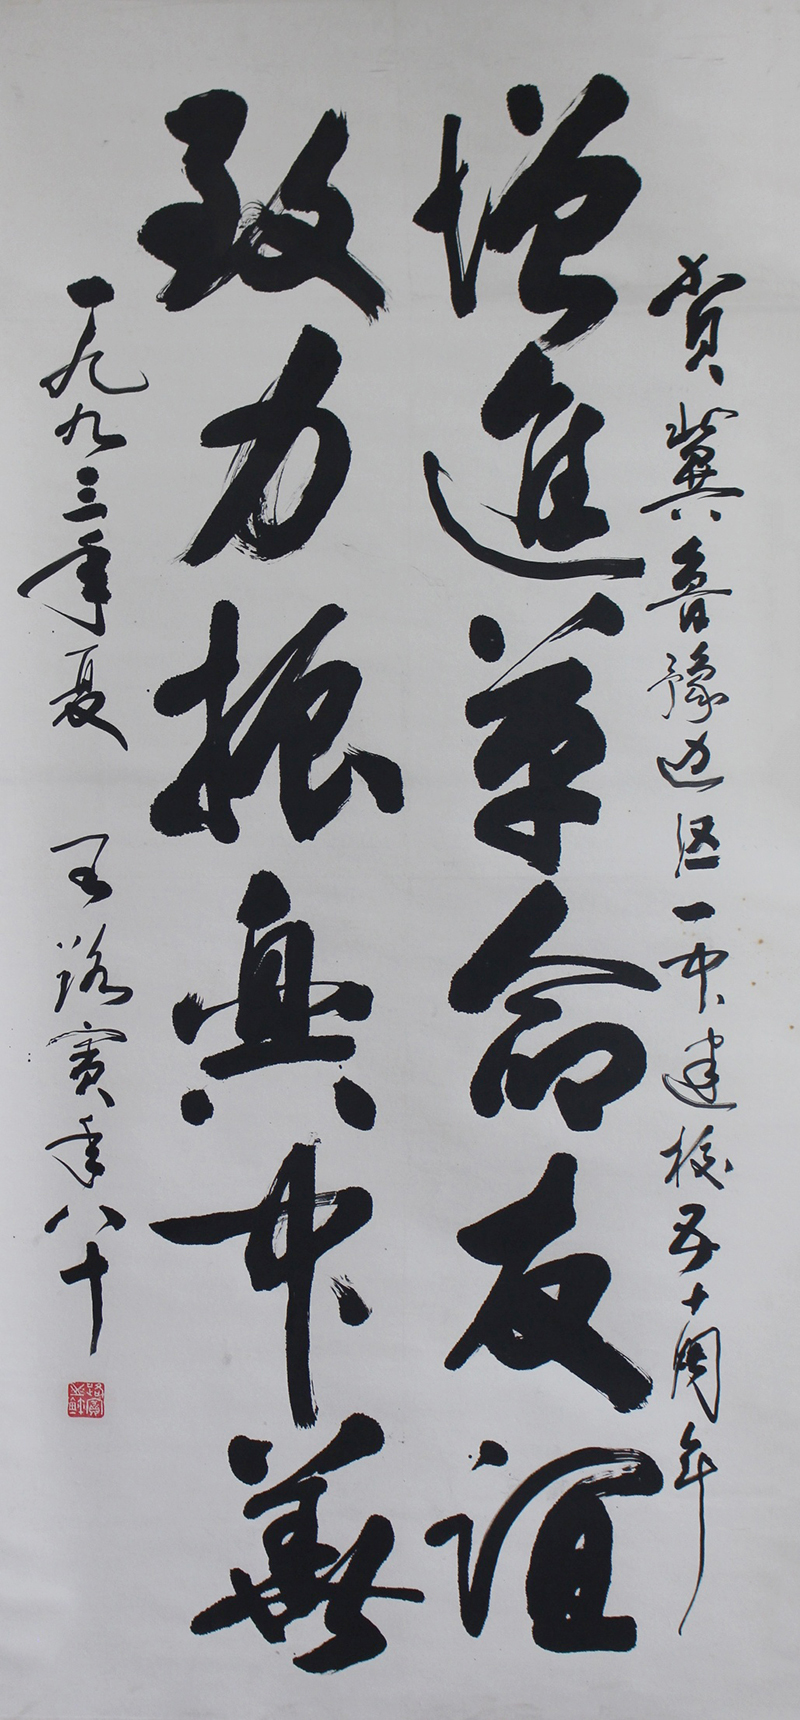 贺冀鲁豫边区一中建校五十周年
增進革命友誼
致力振興中華
一九九三年夏 王路賓年八十